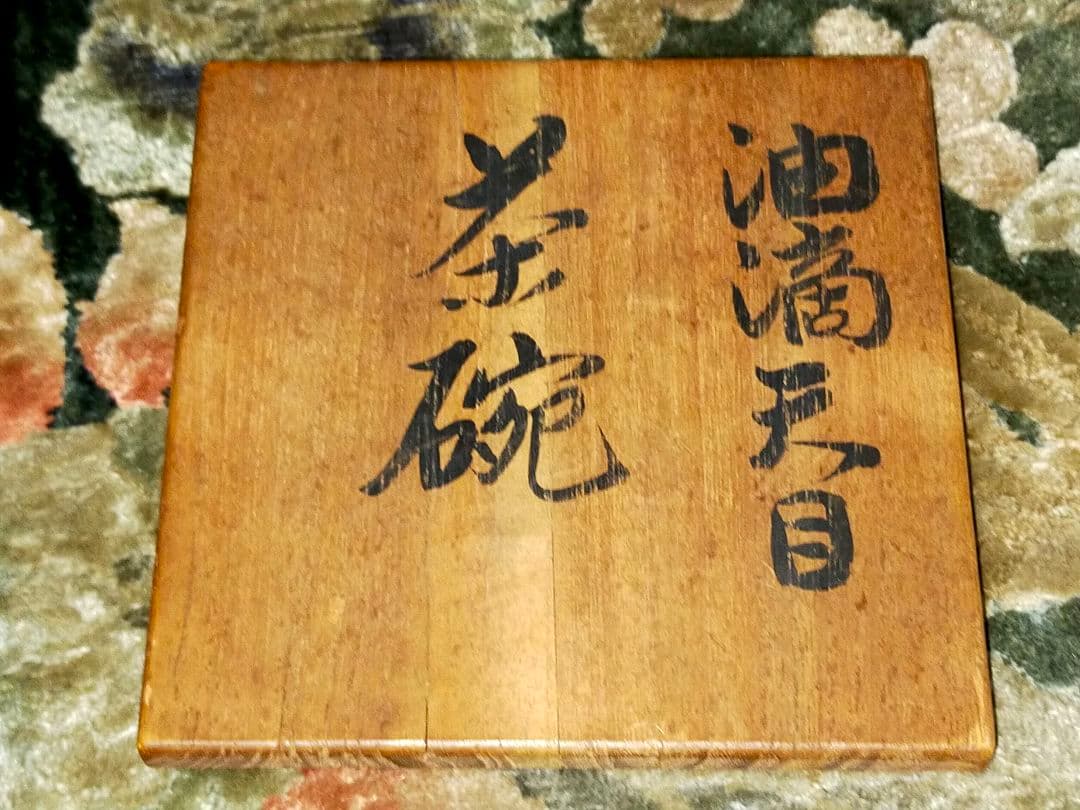 油滴天目
茶碗